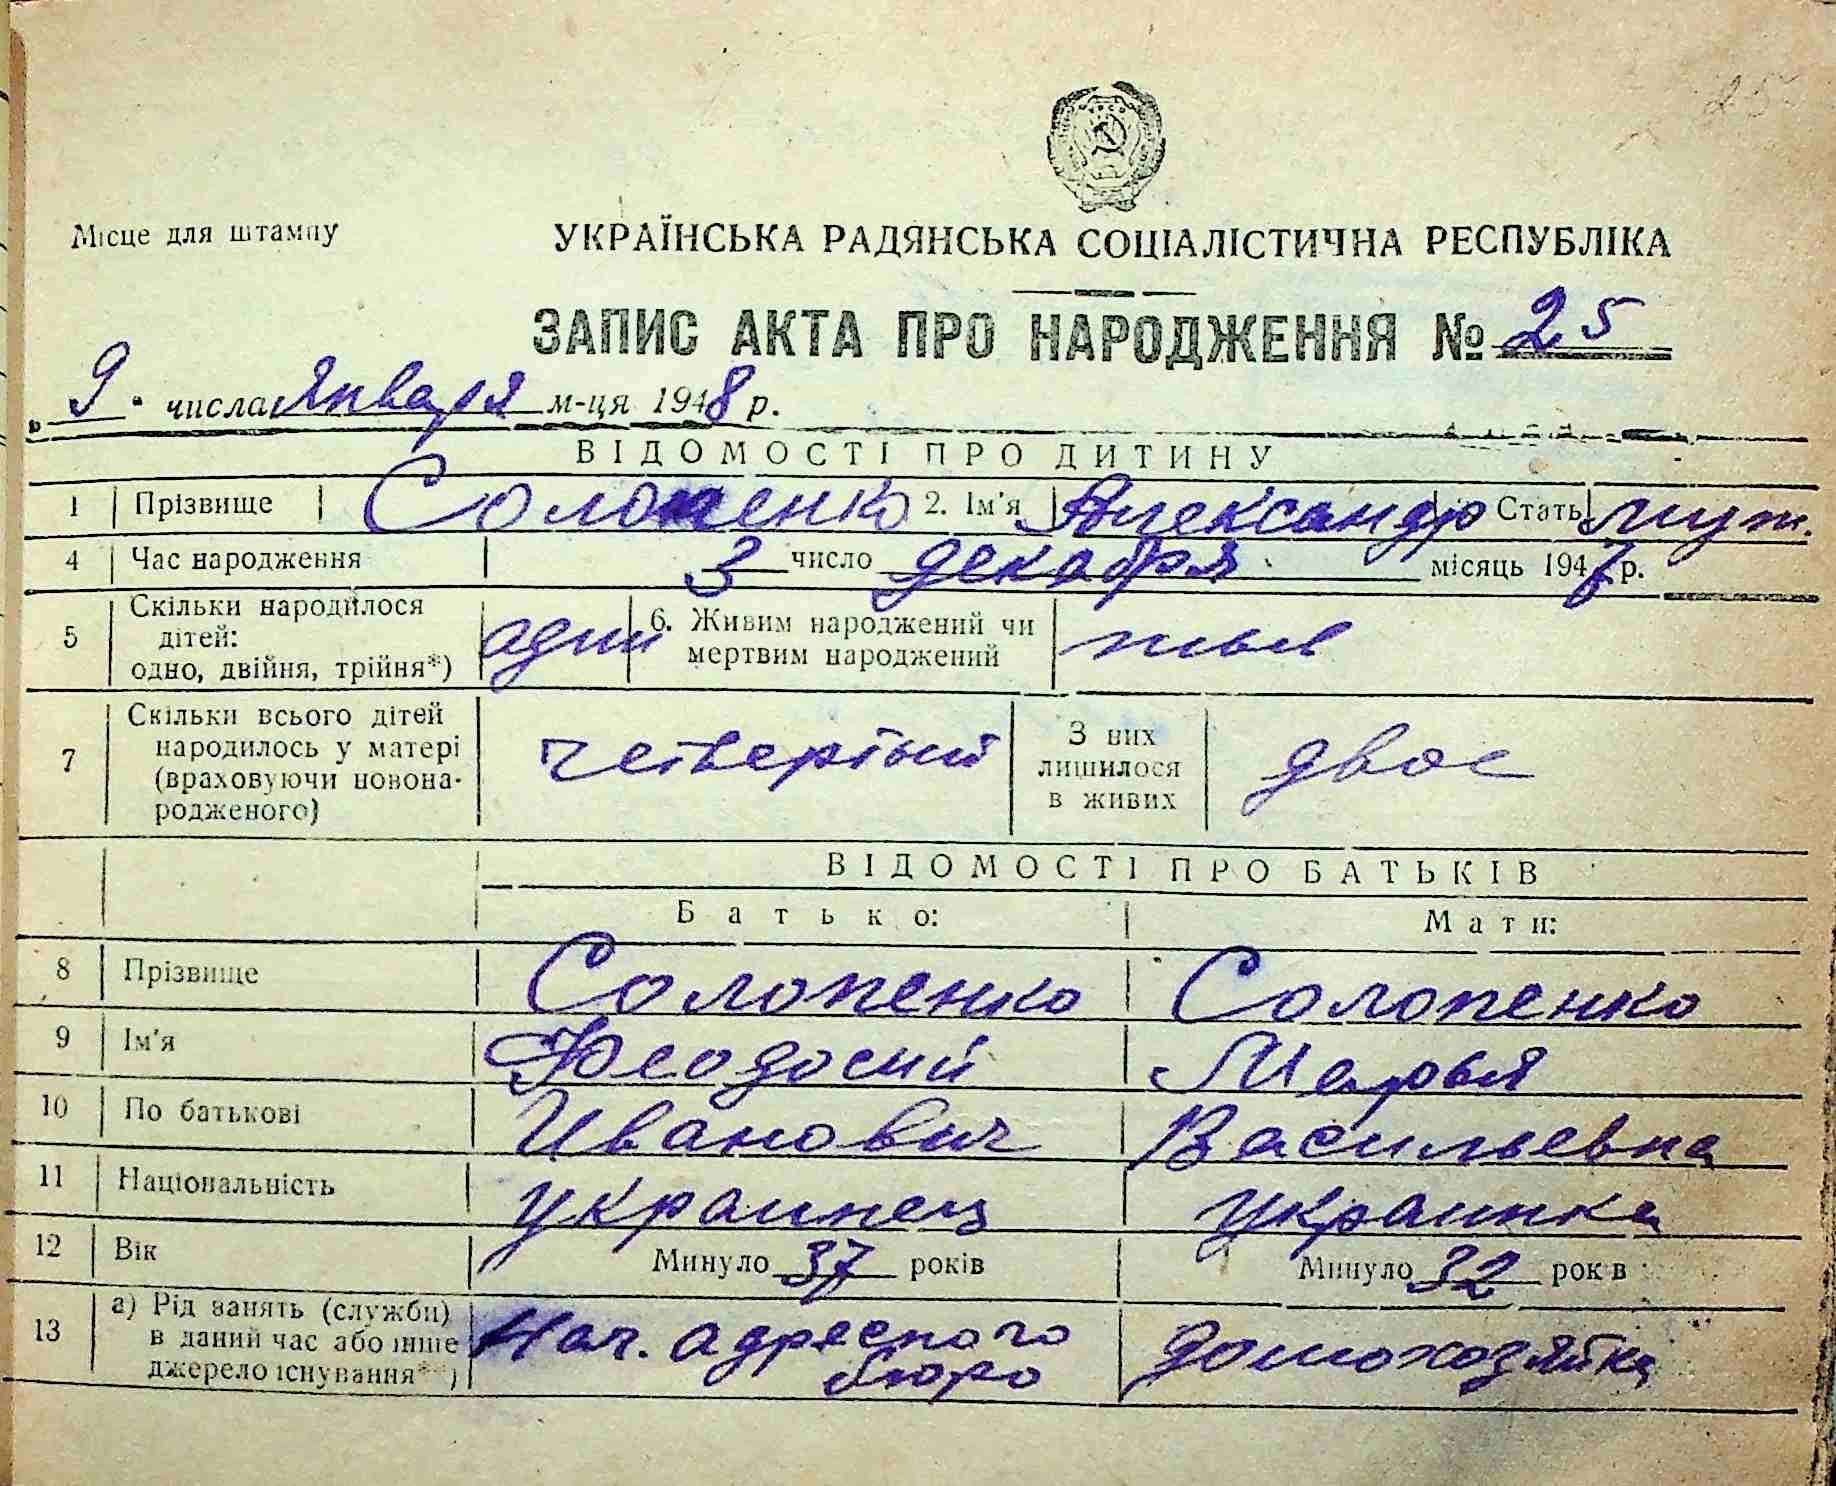 25
Місце для штампу
УКРАЇНСЬКА РАДЯНСЬКА СОЦІАЛІСТИЧНА РЕСПУБЛІКА
ЗАПИС АКТА ПРО НАРОДЖЕННЯ № 25
„ 9 " числа января м-ця 1948 р.
ВІДОМОСТІ ПРО ДИТИНУ
1 Прізвище Солопенко 2. Ім'я Александр Стать муж.
4 Час народження 3 число декабря місяць 1947 р.
5 Скільки народилося дітей: одно, двійня, трійня*) один 6. Живим народжений чи мертвим народжений живым
7 Скільки всього дітей народилось у матері (враховуючи новонародженого) четвертый З них лишилося в живих двое
ВІДОМОСТІ ПРО БАТЬКІВ
Батько: Мати:
8 Прізвище Солопенко Солопенко
9 Ім'я Феодосий Марья
10 По батькові Иванович Васильевна
11 Національність украинец украинка
12 Вік Минуло 37 років Минуло 32 рок в
13 а) Рід занять (служби) в даний час або інше джерело існування*) Нач. адресного бюро домохозяйка